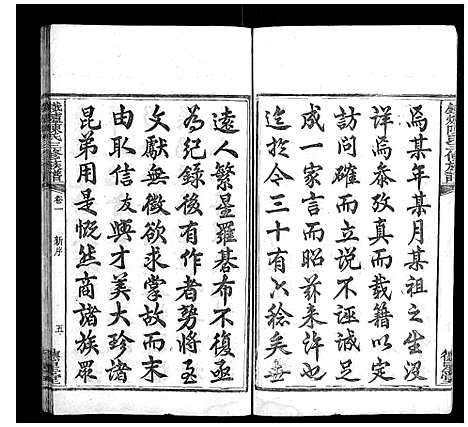 為某年某月某祖之生沒
詳為叅攷真而載籍以定
訪問確而立說不誣誠足
成一家言而昭茲来許也
迄於今三十有八稔矣世
遠人繁星羅碁布不復亟
為紀錄後有作者勢將至
文獻無徵欲求掌故而末
由取信友興才美大珍諸
昆弟用是慨然商諸族眾
陳氏三修族譜
卷一
新序
五
德星堂